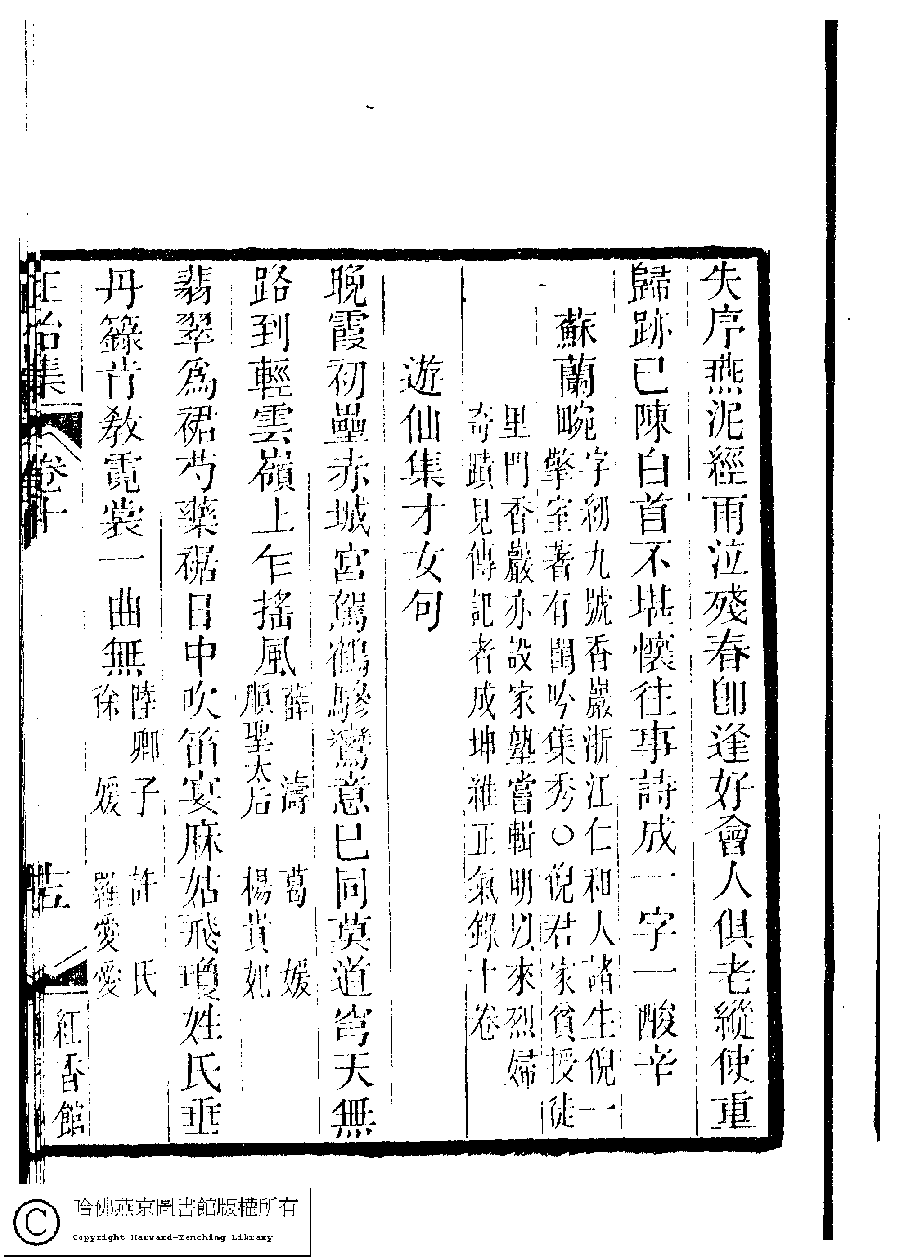 失序燕泥經雨泣殘春卽逢好會人俱老縱使重
歸跡已陳白首不堪懷往事詩成一字一酸辛
蘇蘭畹
字稚九號香巖浙江仁和人諸生倪一
擎室著有閨吟集秀〇倪君家貧授徒
里門香巖亦設家塾嘗輯明以來烈婦
奇蹟見傳記者成坤維正氣錄十卷
遊仙集才女句
晚霞初壘赤城宮駕鶴驂鸞意已同莫道穹天無
路到輕雲嶺上乍搖風
薛濤 葛媛
順聖太后 楊貴妃
翡翠爲裙芍藥裾日中吹笛宴麻姑飛瓊姓氏垂
丹籙肯教霓裳一曲無
陸卿子 許氏
徐媛 羅愛愛
卷十
紅香館
哈佛燕京圖書館版權所有
Copyright Harvard-Yenching Library